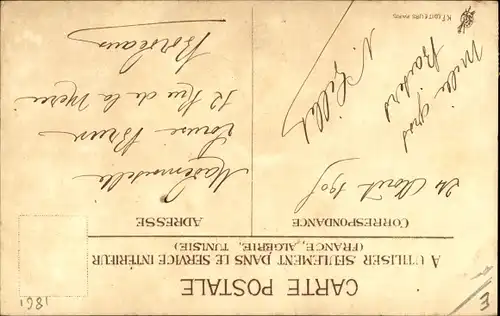 CARTE POSTALE
A UTILISER SEULEMENT DANS LE SERVICE INTÉRIEUR
(FRANCE, ALGÉRIE, TUNISIE)
CORRESPONDANCE
24 Août 1905
Mille gros
baisers
N. Gillet
ADRESSE
Mademoiselle
Louise Brun
12 Rue de la
Bordeaux
K.F. EDITEURS PARIS
1861
E